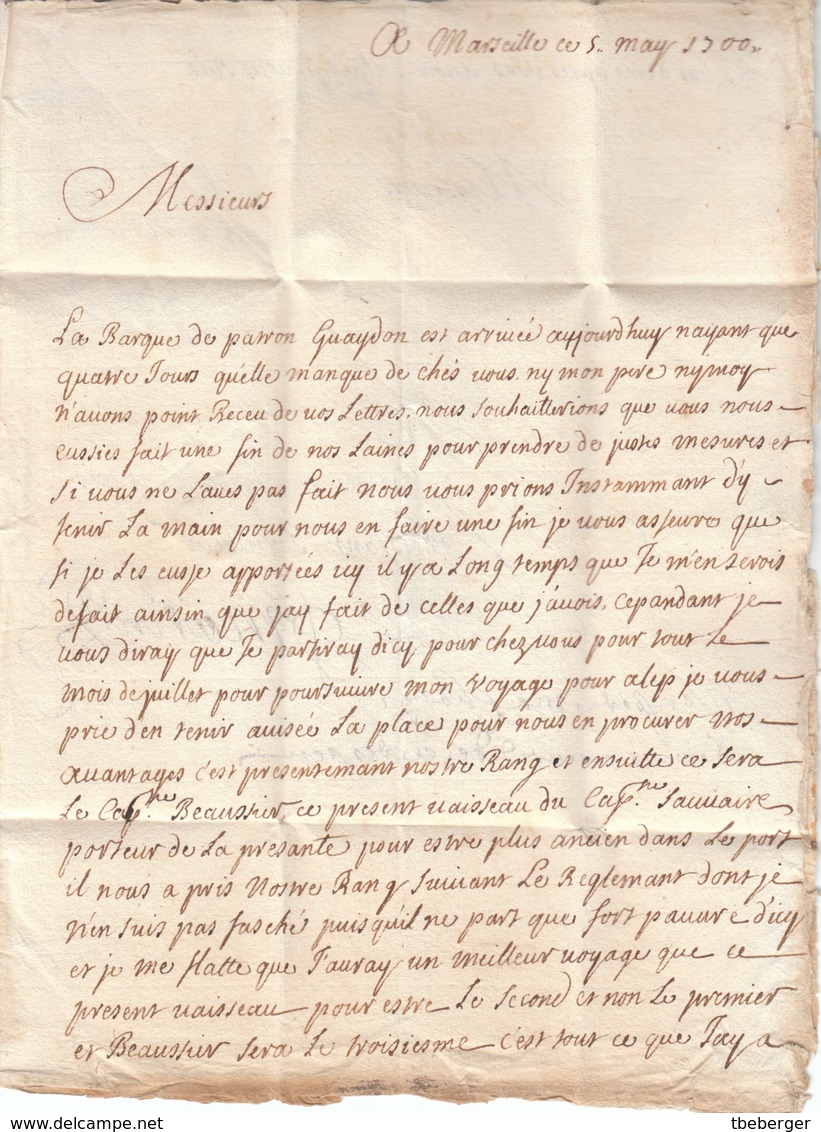 A Marseille ce 5. may 1700.
Messieurs
La Barque de patron Guaydon est arrivée aujourdhuy nayant que
quatre Jours quelle manque de chés vous. ny mon pere ny moy
n'avons point Receu de vos Lettres. nous souhaitterions que vous nous
eussies fait une fin de nos Laines pour prendre de justes mesures et
si vous ne Laves pas fait nous vous prions Instammant d'y
tenir La main pour nous en faire une fin je vous asseure que
si je Les eusse apportées icy il y a Long temps que Je m'en serois
defait ainsin que jay fait de celles que j'avois, cepandant je
vous diray que Je partiray dicy pour chez vous pour tout Le
mois de juillet pour poursuivre mon voyage pour alep je vous
prie d'en tenir avisée La place pour nous en procurer nos
avantages c'est presentemant nostre Rang et ensuitte ce sera
Le Cap.ne Beaussier, ce present vaisseau du Cap.ne Sauvaire
porteur de La presante pour estre plus ancien dans Le port
il nous a pris Nostre Rang suivant Le Reglemant dont je
n'en suis pas fasché puisqu'il ne part que fort pauvre d'icy
et je me flatte que J'auray un meilleur voyage que ce
present vaisseau pour estre Le second et non Le premier
et Beaussier sera Le troisiesme c'est tout ce que Jay a
delcampe.net
tbeberger